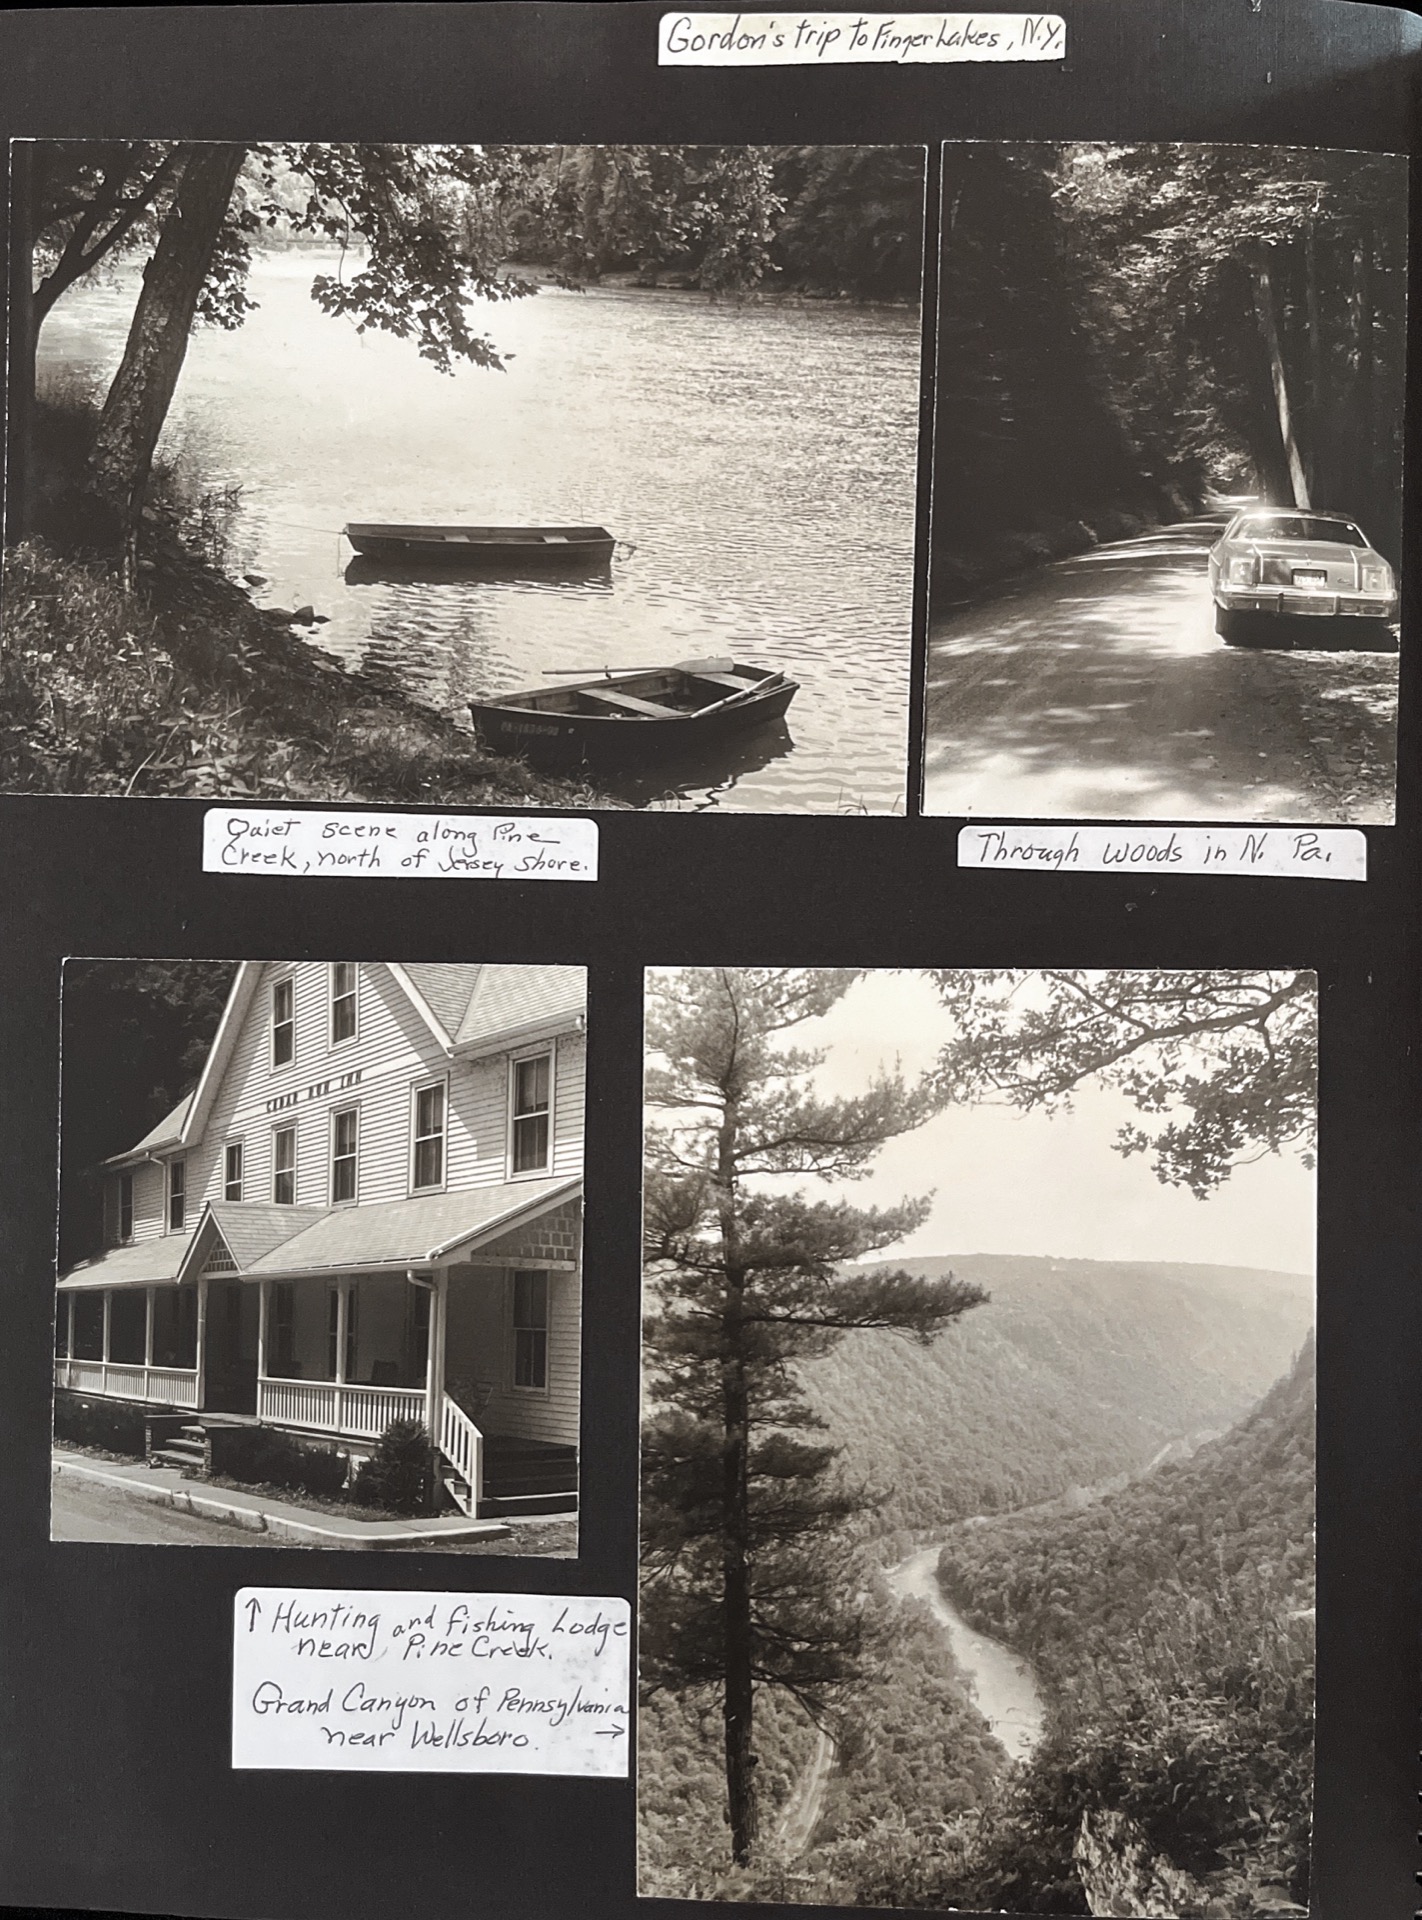 Gordon's trip to Finger Lakes, N.Y.
Quiet scene along Pine
Creek, north of Jersey Shore.
Through woods in N. Pa.
CEDAR RUN INN
↑ Hunting and fishing Lodge
near Pine Creek.
Grand Canyon of Pennsylvania
near Wellsboro. →